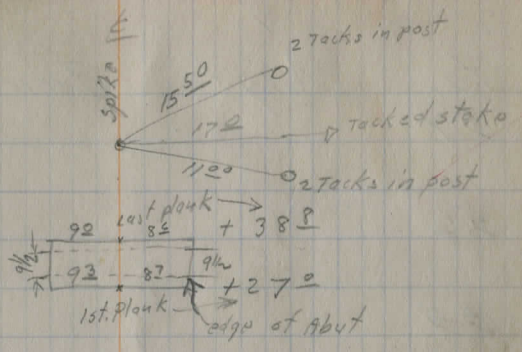 E
Spike
2 Tacks in post
15 50
17 0
Tacked stake
11 00
2 Tacks in post
Last plank
+ 3 8 8
9 2
8 6
9 1/2
9 1/2
9 3
8 7
+ 2 7 0
1st. Plank
edge of Abut